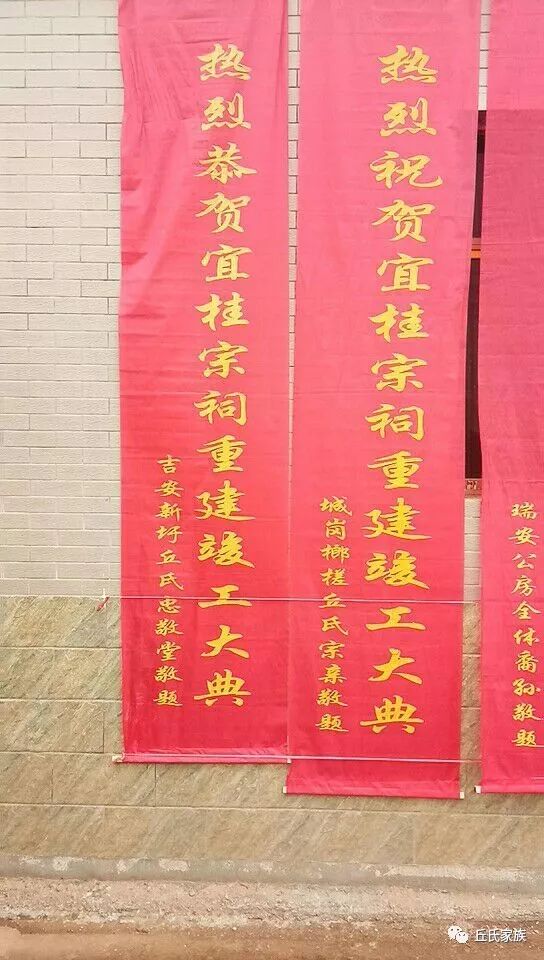 热烈恭贺宜桂宗祠重建竣工大典
吉安新圩丘氏忠敬堂敬题
热烈祝贺宜桂宗祠重建竣工大典
城岗榔槎丘氏宗亲敬题
瑞安公房全体裔孙敬题
丘氏家族